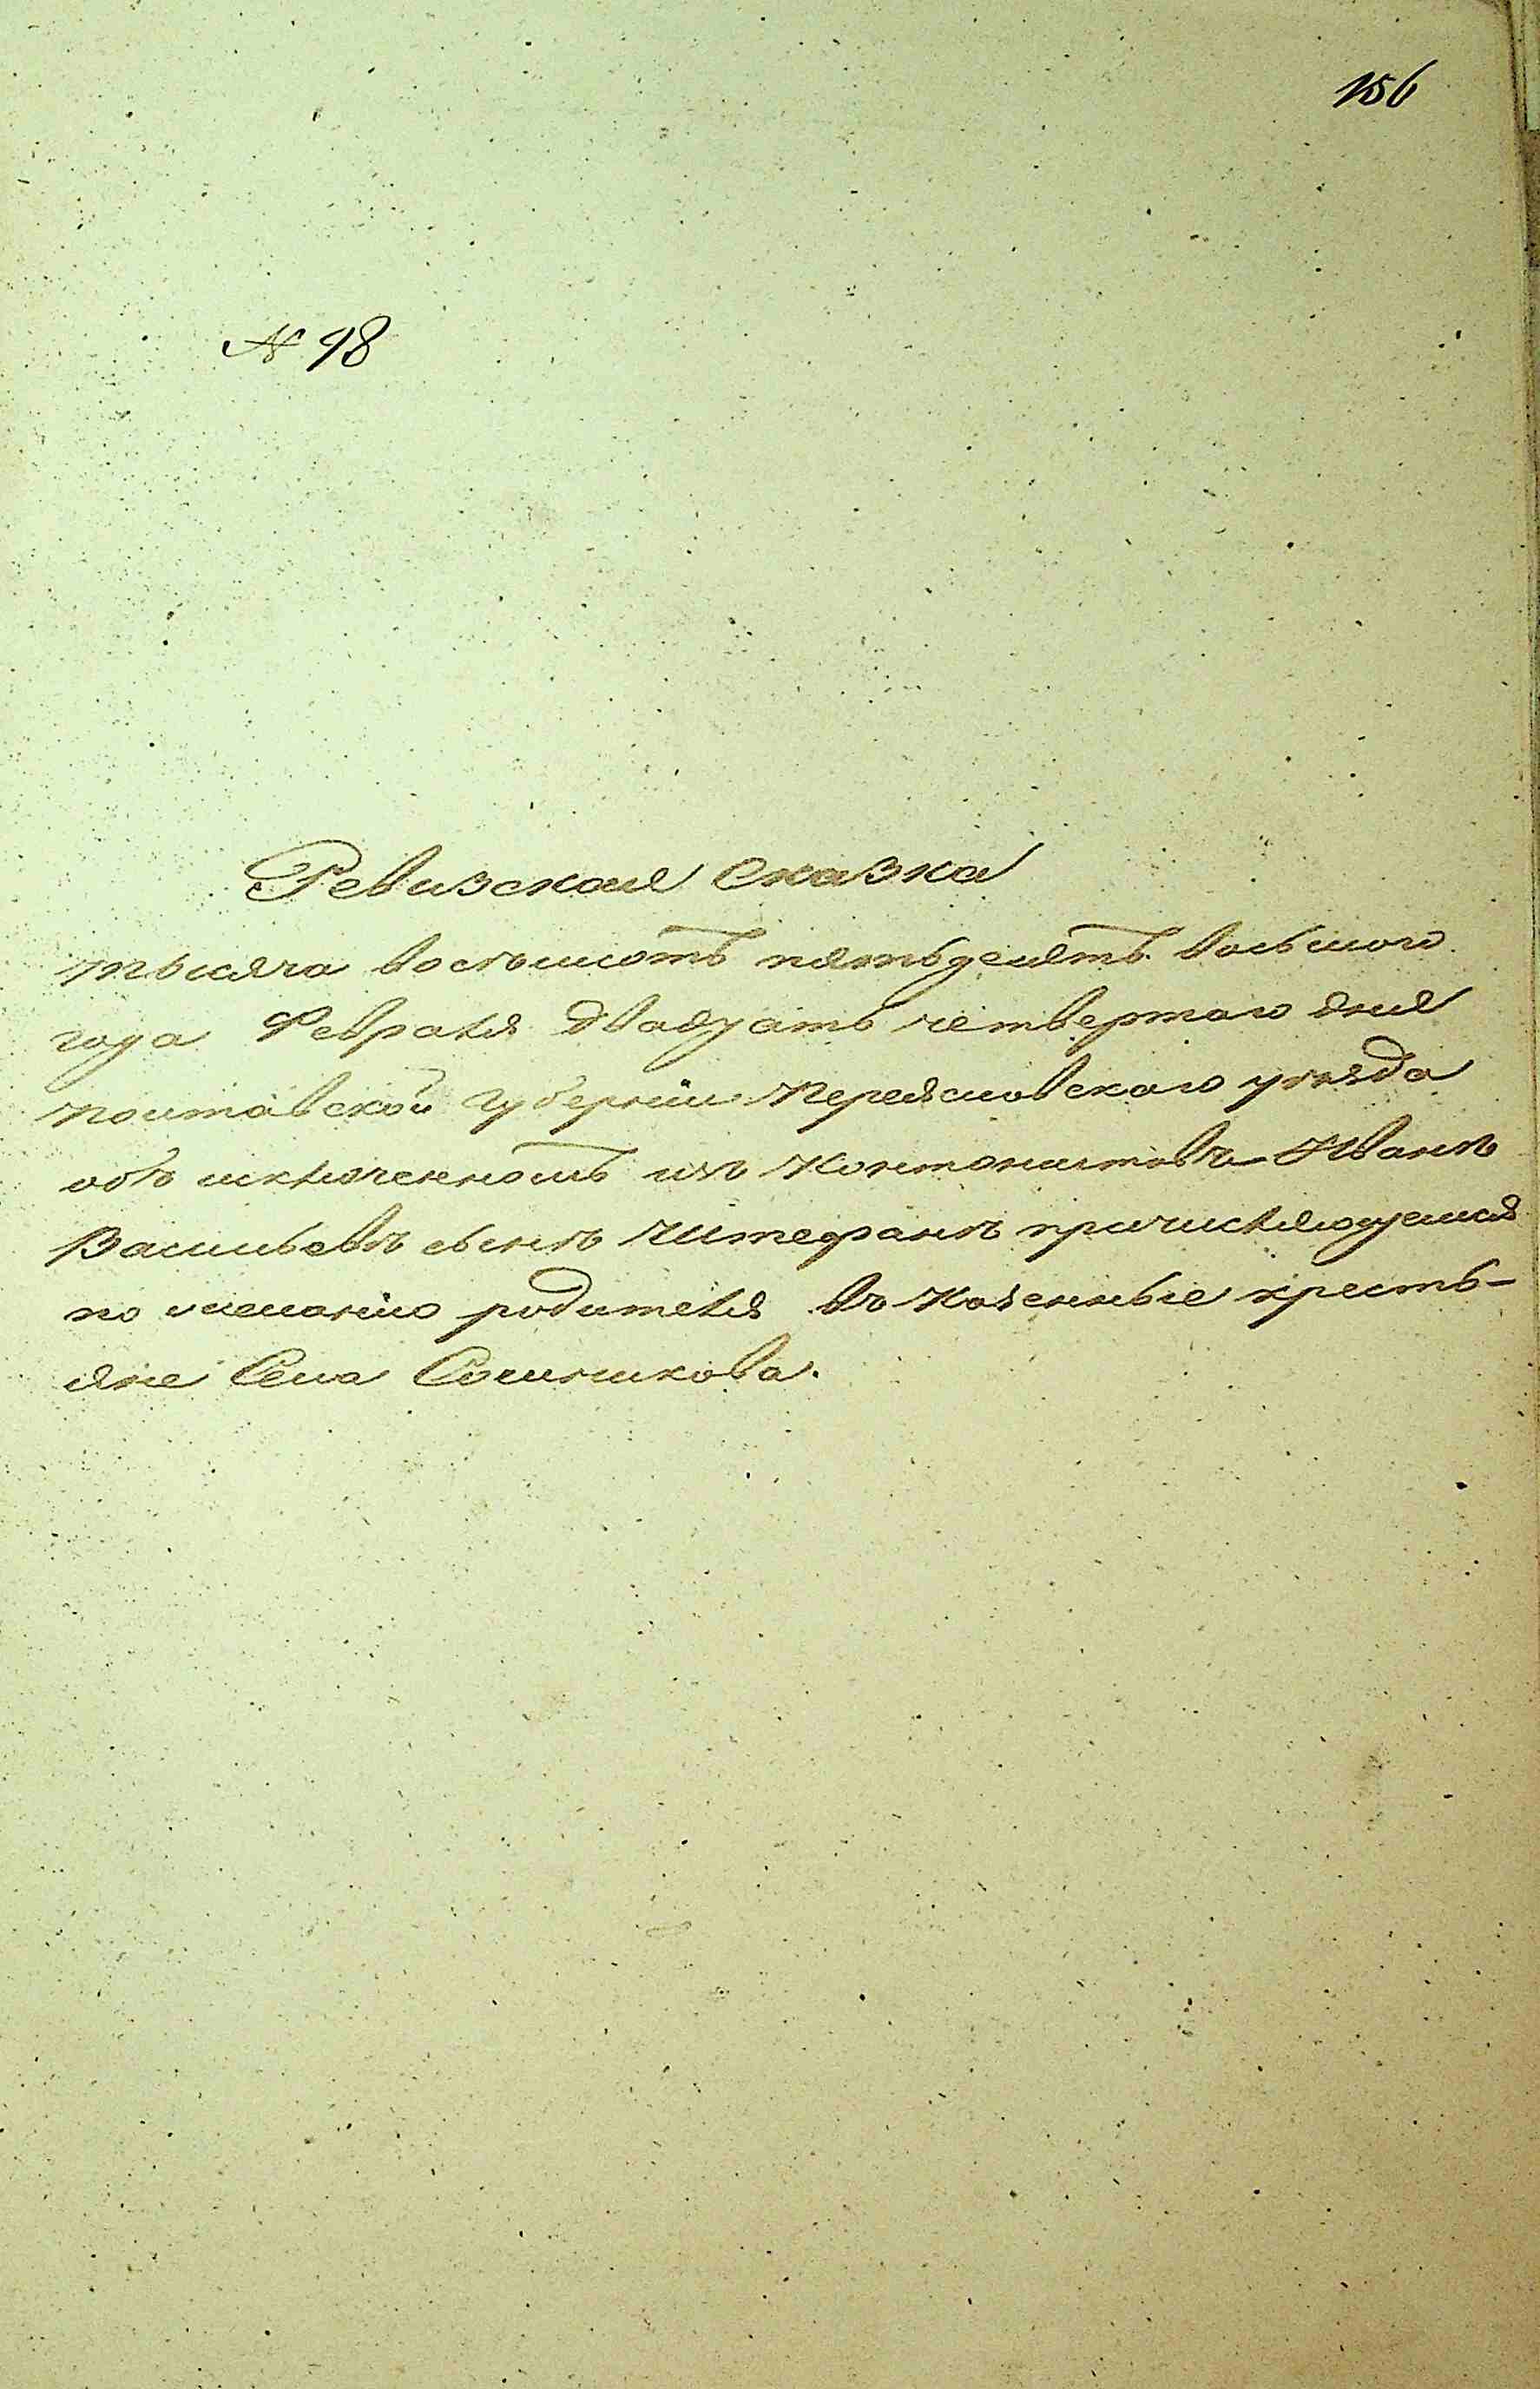 156
№ 98
Ревизская сказка
тысяча восемьсотъ пятьдесятъ восьмого
года Февраля двадцать четвертаго дня
Полтавской губерніи Переяславского уезда
объ исключенномъ изъ Кантонистовъ Иванъ
Васильевъ сынъ Штефанъ причисляющемся
по желанію родителя въ Казенные кресть-
яне Села Сошникова.